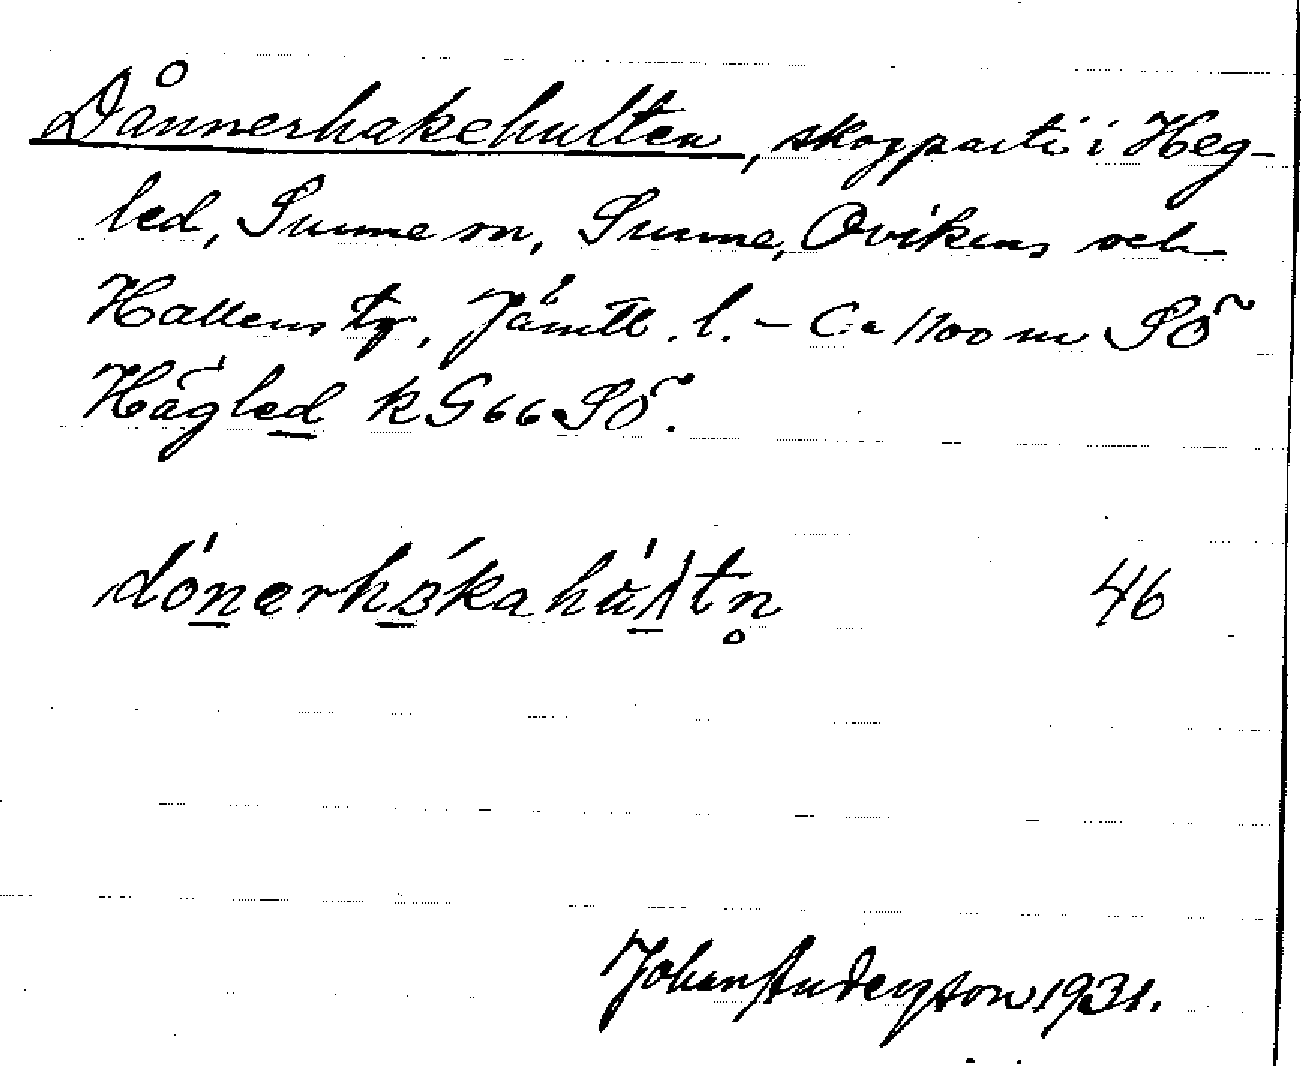 Dånnerhakehulten, skogparti i Heg-
led, Sunne sn, Sunne, Ovikens och
Hallens tg, Jämtl. l. – Ca 1100 m SÖ
Hägled kG66SÖ.
46
Johan Anderson 1931.